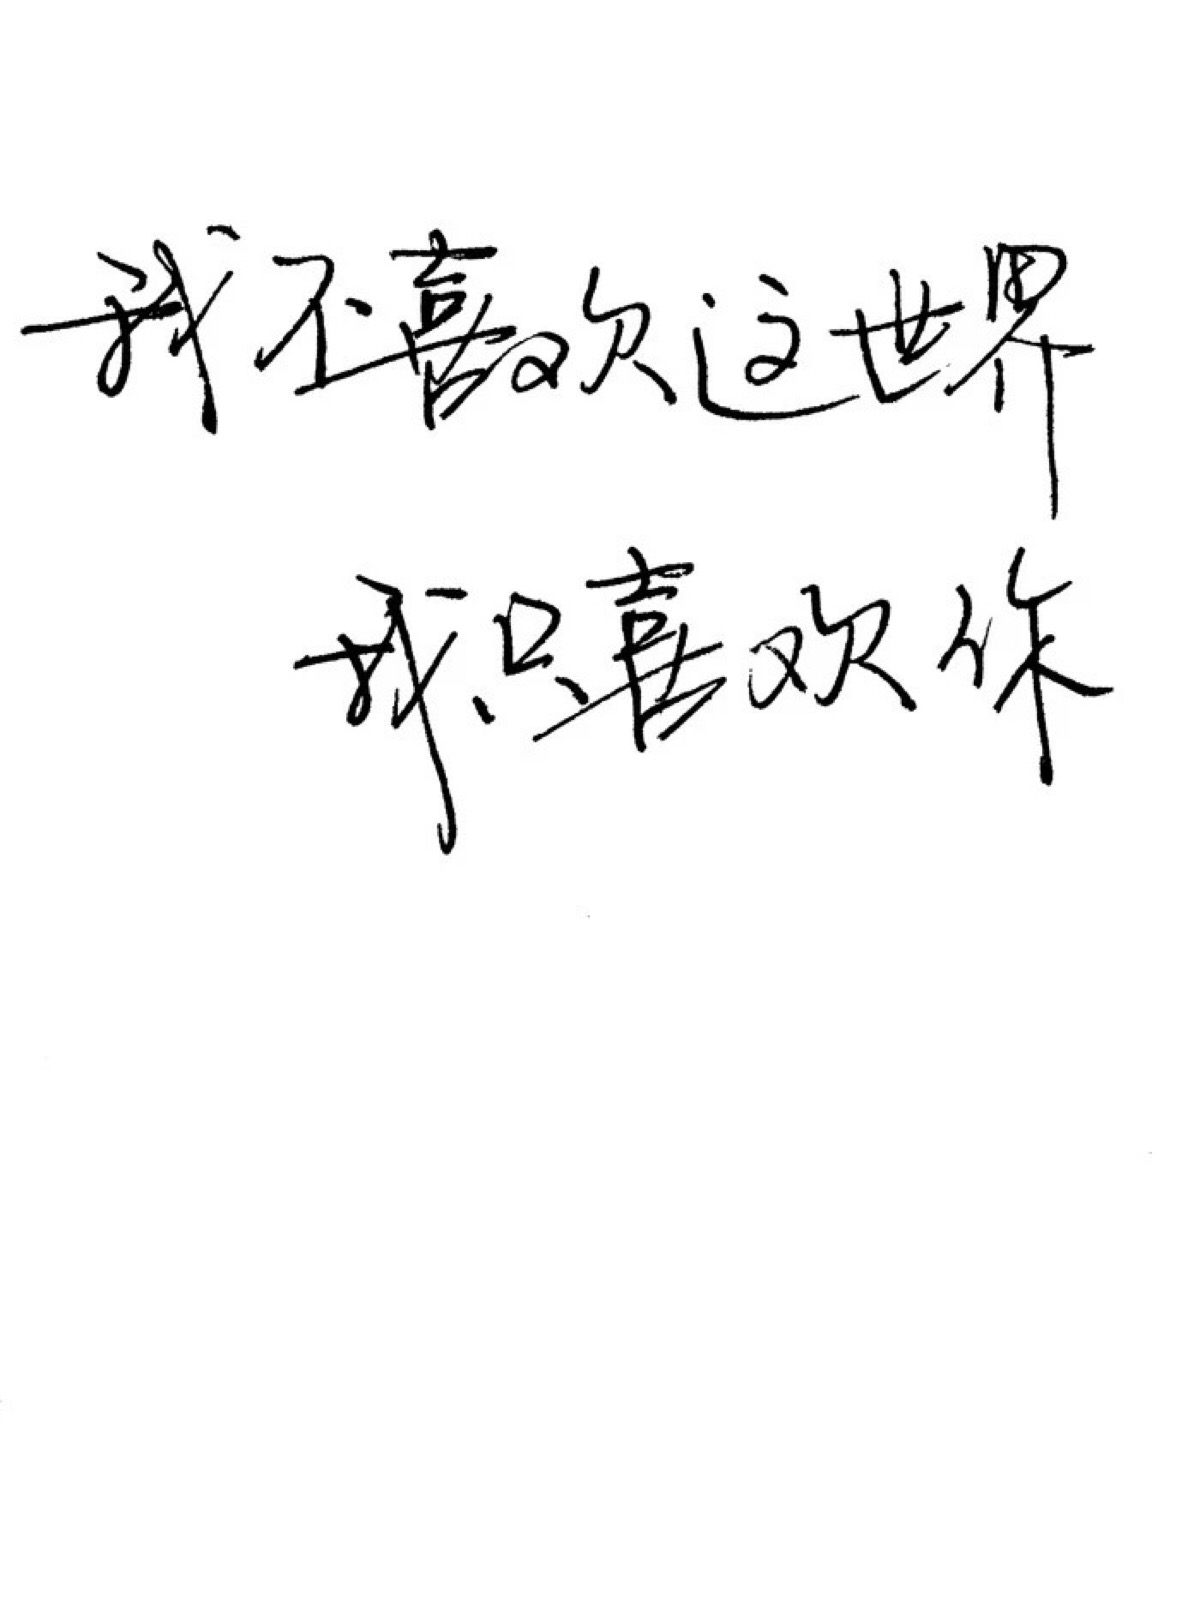 我不喜欢这世界
我只喜欢你